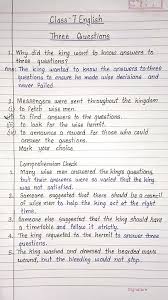 Class-7 English
Three Questions
1. Why did the king want to know answers to
three questions?
Ans: The king wanted to know the answers to three
questions to ensure he made wise decisions and
never failed.
2. Messengers were sent throughout the kingdom
i) to fetch wise men.
ii) to find answers to the questions.
to look for the wise hermit.
iv) to announce a reward for those who
could answer the questions.
Mark your choice
Comprehension Check
1. Many wise men answered the king's questions,
but their answers were so varied that the king
was not satisfied.
2. Someone suggested that there should be a council
of wise men to help the king act at the right
time.
3. Someone else suggested that the king should have
a timetable and follow it strictly.
4. The king requested to the hermit to answer three
questions.
5. The king washed and dressed the bearded man's
wound, but the bleeding would not stop.
Signature